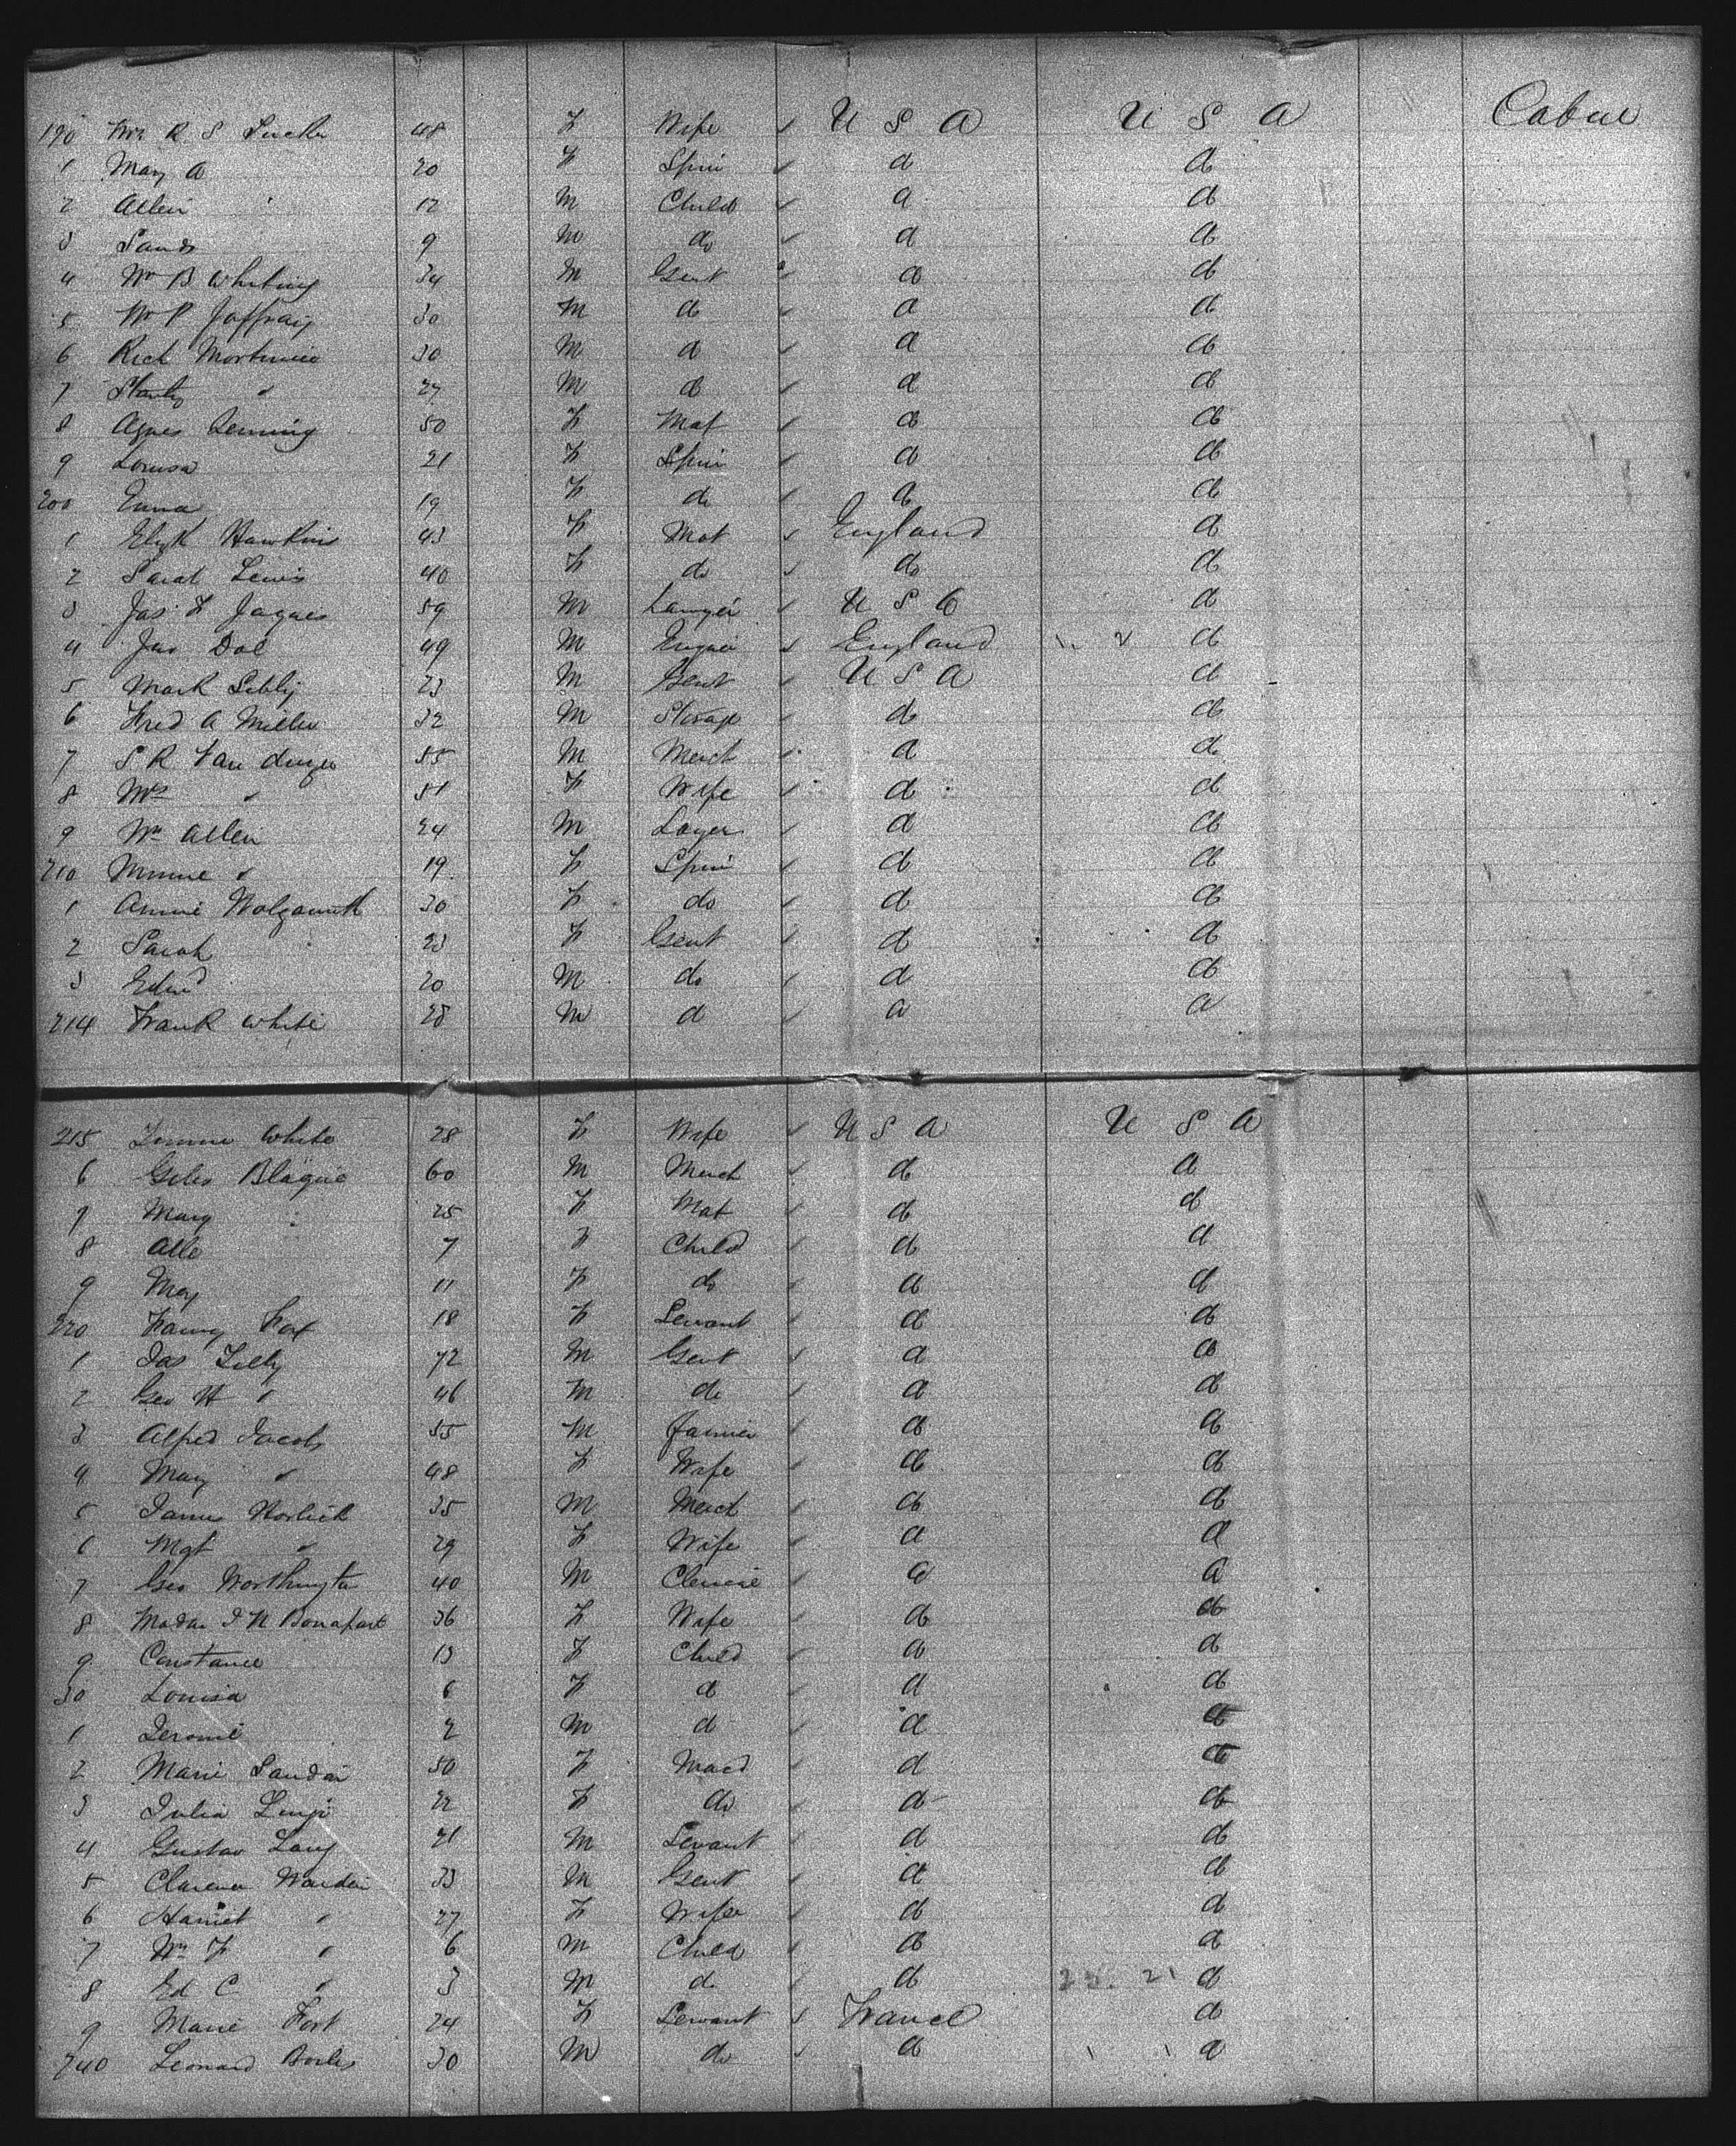 190 Mrs R. S 48 F Wife U S A U S A Cabin
1 Mary A 20 F Spin d d
2 Allen 12 M Child d d
3 Sands 9 M do d d
4 Wm B Whiting 34 M Gent d d
5 Wm P Jaffray 30 M d d d
6 Rich Mortimer 30 M d d d
7 Stanley " 27 M d d d
8 Agnes 50 F Mat d d
9 Louisa 21 F Spin d d
200 Emma 19 F do d d
1 Elizth Hawkins 43 F Mat England d
2 Sarah Lewis 40 F do do d
3 Jas F Jaques 59 M Lawyer U S d
4 Jno Dol 49 M England d
5 Mark Sibley 23 M Gent U S A d
6 Fred A Miller 32 M do d
7 S R Van 55 M Merch d do
8 Mrs " 51 F Wife d d
9 Wm Allen 24 M d d
210 Minnie " 19 F Spin d d
1 Annie Wolgamuth 30 F do d d
2 Sarah 23 F Gent d d
3 Edwd 20 M do d d
214 Frank White 28 M d d d
215 White 28 F Wife U S A U S A
6 Giles Blague 60 M Merch d d
7 Mary 25 F Mat d d
8 Alle 7 F Child d d
9 May 11 F do d d
220 Fanny 18 F Servant d d
1 Jas Tilly 72 M Gent d d
2 Geo H " 46 M do d d
3 Alfred Jacobs 55 M Farmer d d
4 Mary " 48 F Wife d d
5 James Horlick 35 M Merch d d
6 Mgt " 29 F Wife d d
7 Geo Worthington 40 M d d
8 Madam J N Bonapart 36 F Wife d d
9 Constance 13 F Child d d
30 Louisa 6 F d d d
1 Jerome 2 M d d d
2 Marie 50 F Maid d d
3 Julia 22 F do d d
4 Gustav Lang 21 M Servant d d
5 Clarence Warden 33 M Gent d d
6 Harriet " 27 F Wife d d
7 Wm F " 6 M Child d d
8 Ed C " 3 M do d d
9 Marie Fort 24 F Servant France d
240 Leonard 30 M do d d